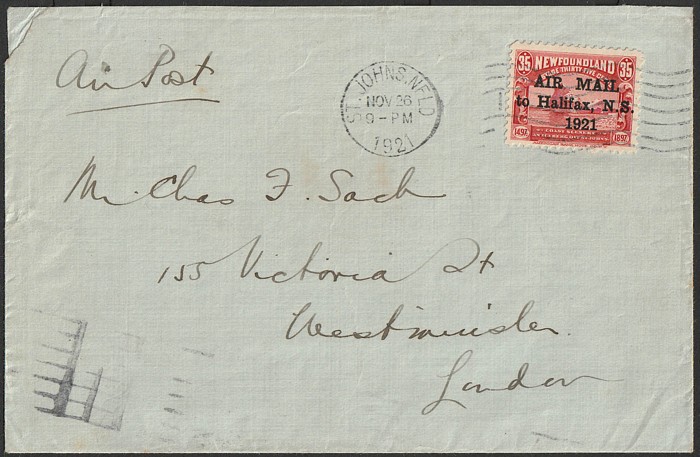 Air Post
ST. JOHNS. NFLD
NOV 26
9-PM
1921
35 NEWFOUNDLAND 35
AIR MAIL
to Halifax, N.S.
1921
1497 1897
Mr. Chas F. Sach
155 Victoria St
Westminster.
London